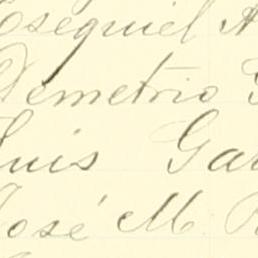 Esequiel A
Demetrio G
Luis Gar
José M. R